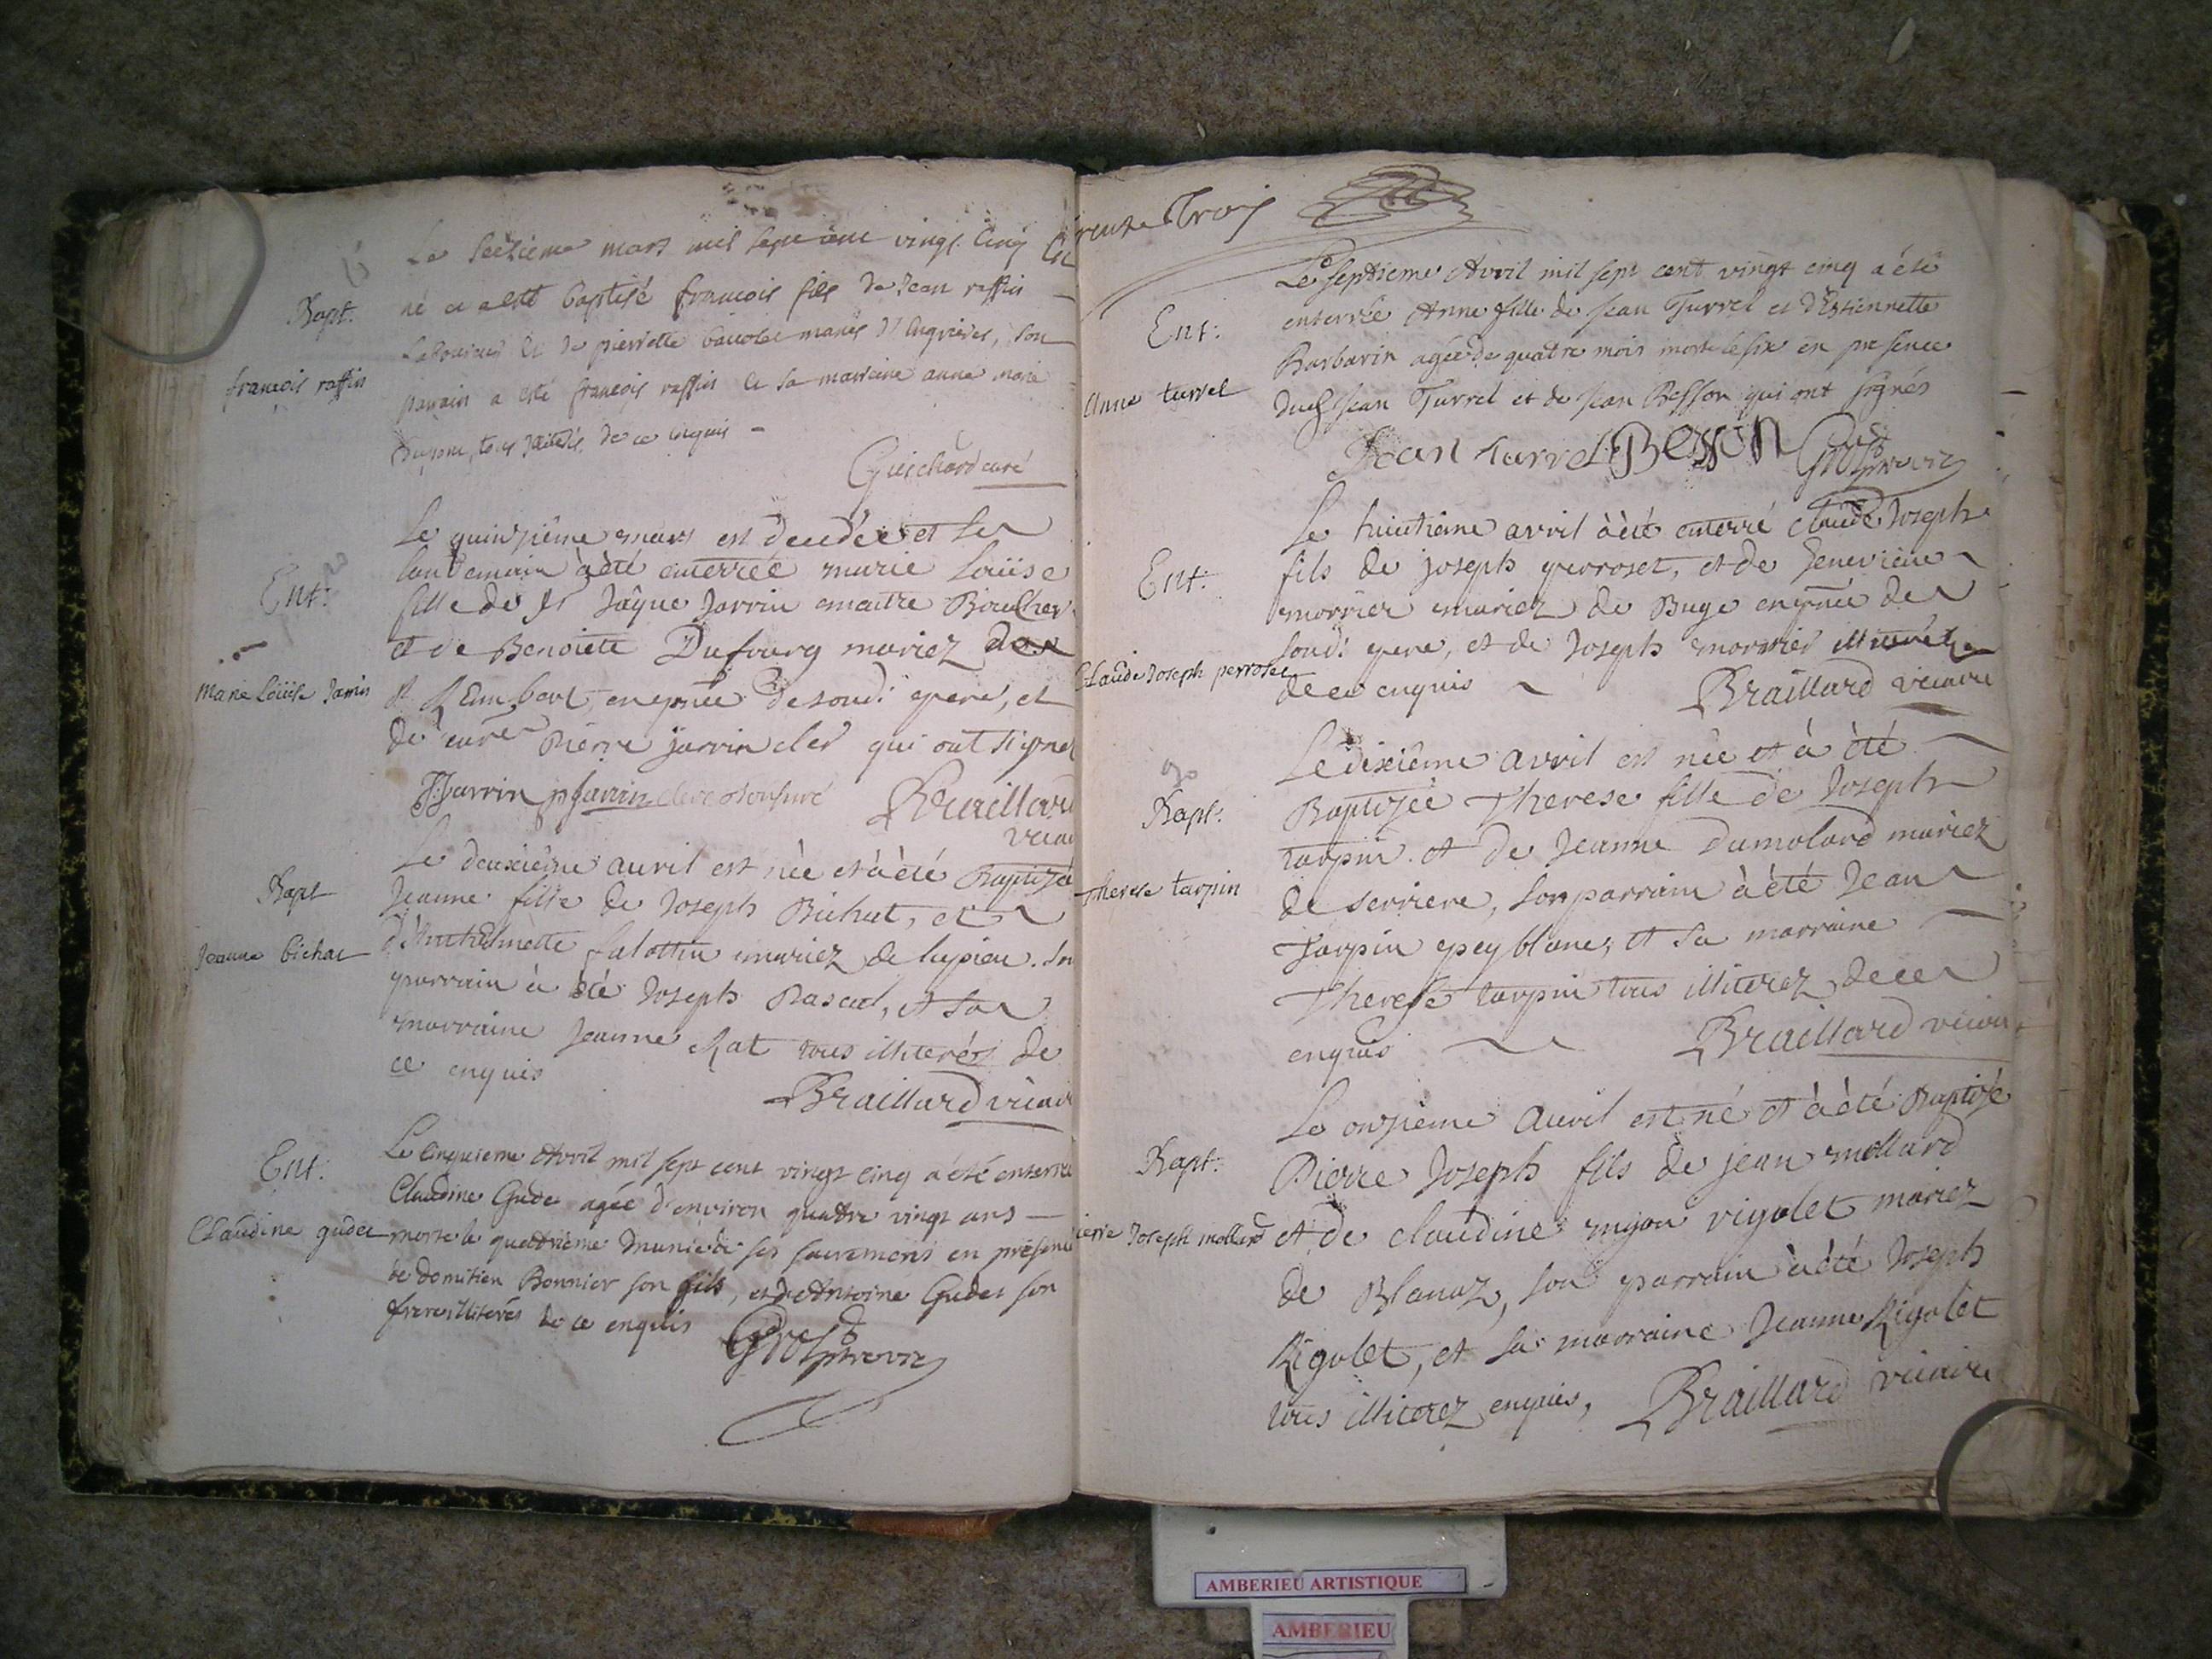 Le seizieme mars mil sept cent vingt cinq est
né et a esté baptisé francois fils de Jean raffin
Laboureur et de pierrette mariés d'Ingrieres, son
parrain a esté françois raffin et sa marraine anne marie
Dupont, tous de ce enquis
Bapt.
françois raffin
Guichard curé
Le quinzième mars est décédée et le
landemain à été enterrée marie Loüise
fille de Sr Jâque Jarrin maitre Boucher
et de Benoiete Dufourg mariez de
St Rambert, en pnce de soud: pere, et
de Pierre jarrin cler qui ont signez
Ent:
Marie Loüise Jarrin
J Jarrin p Jarrin clerc tonsuré Braillard
vicai
Le deuxième avril est née et à été Baptisée
Jeanne fille de Joseph Bichat, et
d'Anthelmette falottin mariez de lupieu. son
parrain à été Joseph Pascal, et sa
marraine Jeanne Rat tous illiterés de
ce enquis
Bapt
Jeanne bichat
Braillard vicaire
Le Cinquieme Avril mil sept cent vingt cinq a été enterrée
Claudine Gudet agée d'environ quattre vingt ans
morte le quattrième munie de ses sacremens en présence
de domitien Bonnier son fils, et d'Antoine Gudet son
frere illiterés de ce enquis
Ent.
Claudine gudet
Gros
trente Trois
Le septieme Avril mil sept cent vingt cinq a été
enterrée Anne fille de Jean Turrel et d'Estiennette
Barbarin agée de quatre mois morte le six en presence
dud Jean Turrel et de Jean Besson qui ont signés
Ent:
Anne turrel
Jean turrel Besson Gros
Le huictième avril à été enterré claude Joseph
fils de joseph perroset, et de Genevieve
morrier mariez de Buge en pnce de
soud: pere, et de Joseph morrier illiterez
de ce enquis Braillard vicaire
Ent:
Claude Joseph perroset
Le dixième avril est née et à été
Baptisée Therese fille de Joseph
tarpin et de Jeanne Dumolard mariez
de serriere, son parrain à été Jean
Tarpin pey blanc, et sa marraine
Therese tarpin tous illiterez de ce
enquis Braillard vicaire
90
Bapt.
Therese tarpin
Le onzième Avril est né et à été Baptisé
Pierre Joseph fils de jean mollard
et de claudine mjon rigolet mariez
de Blanaz, son parrain à été Joseph
Rigolet, et sa marraine Jeanne Rigolet
tous illiterez enquis, Braillard vicaire
Bapt.
ierre Joseph mollard
AMBERIEU ARTISTIQUE
AMBERIEU